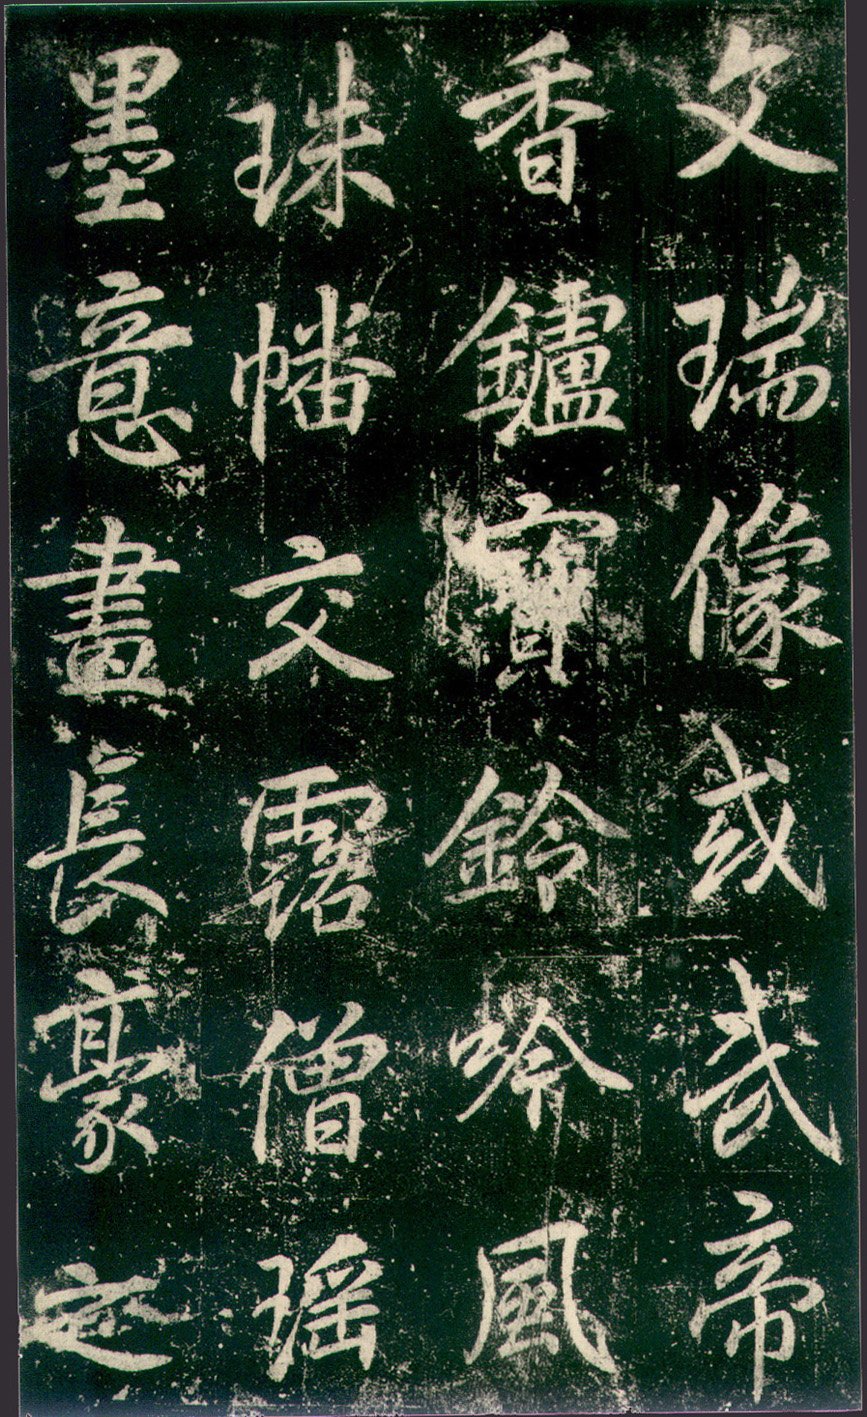 文瑞像或武帝
香鑪寶鈴吟風
珠幡交露僧瑶
墨意畫長豪